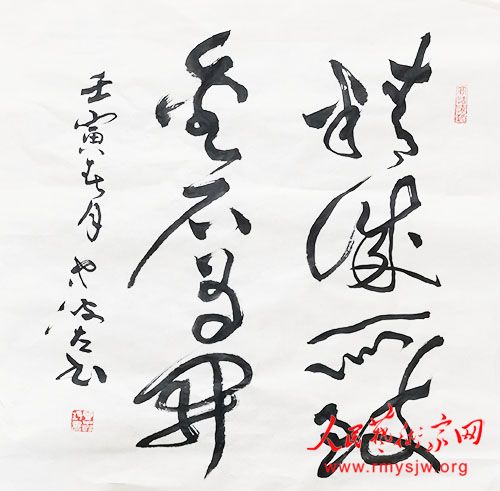 精诚所致
金石为开
壬寅春月
人民藝術家网
www.rmysjw.org